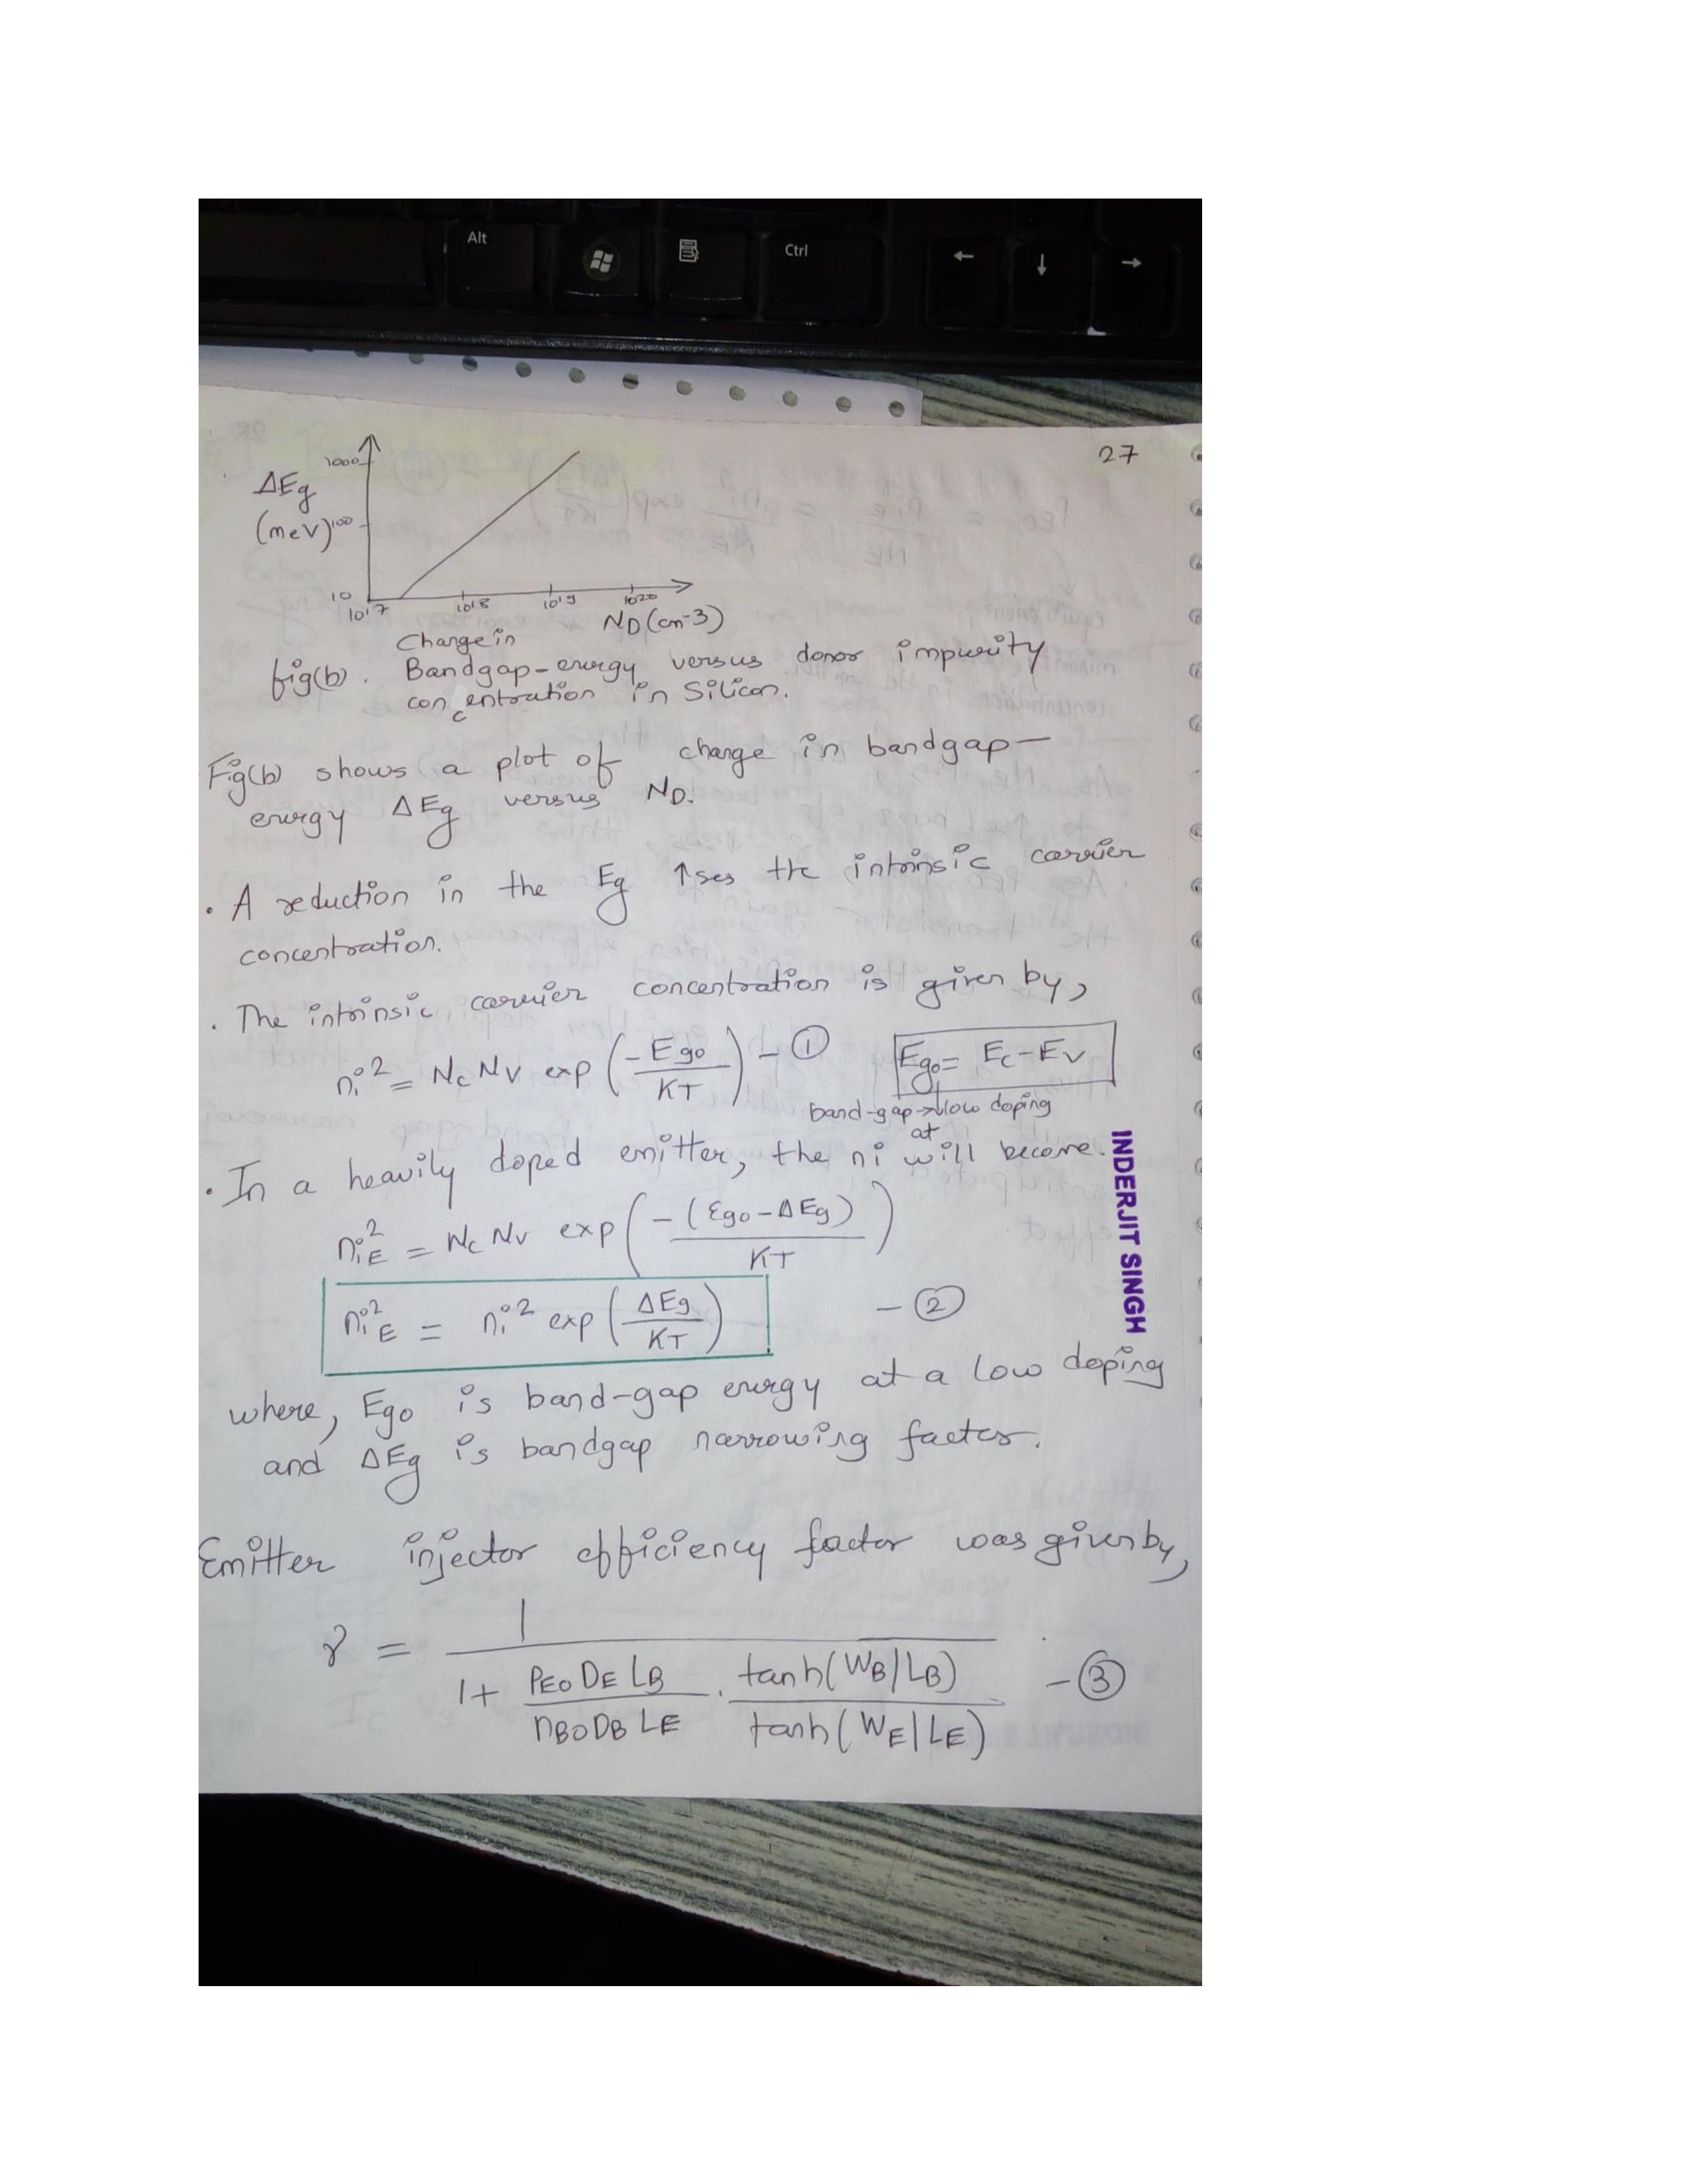 Alt
Ctrl
← ↓ →
27
ΔEg
(meV)
1000
100
10
10^17 10^18 10^19 10^20
ND (cm-3)
Change in
fig(b). Bandgap-energy versus donor impurity
concentration in Silicon.
Fig(b) shows a plot of change in bandgap-
energy ΔEg versus ND.
. A reduction in the Eg ↑ses the intrinsic carrier
concentration.
. The intrinsic carrier concentration is given by,
ni^2 = Nc Nv exp (-Ego/KT) - ①
Ego = Ec - Ev
band-gap → low doping
at
. In a heavily doped emitter, the ni will become.
niE^2 = Nc Nv exp (-(Ego - ΔEg)/KT)
niE^2 = ni^2 exp (ΔEg/KT) - ②
where, Ego is band-gap energy at a low doping
and ΔEg is bandgap narrowing factor.
INDERJIT SINGH
Emitter injector efficiency factor was given by,
γ = 1/(1 + (PEO DE LB)/(nBO DB LE) . tanh(WB/LB)/tanh(WE/LE)) - ③